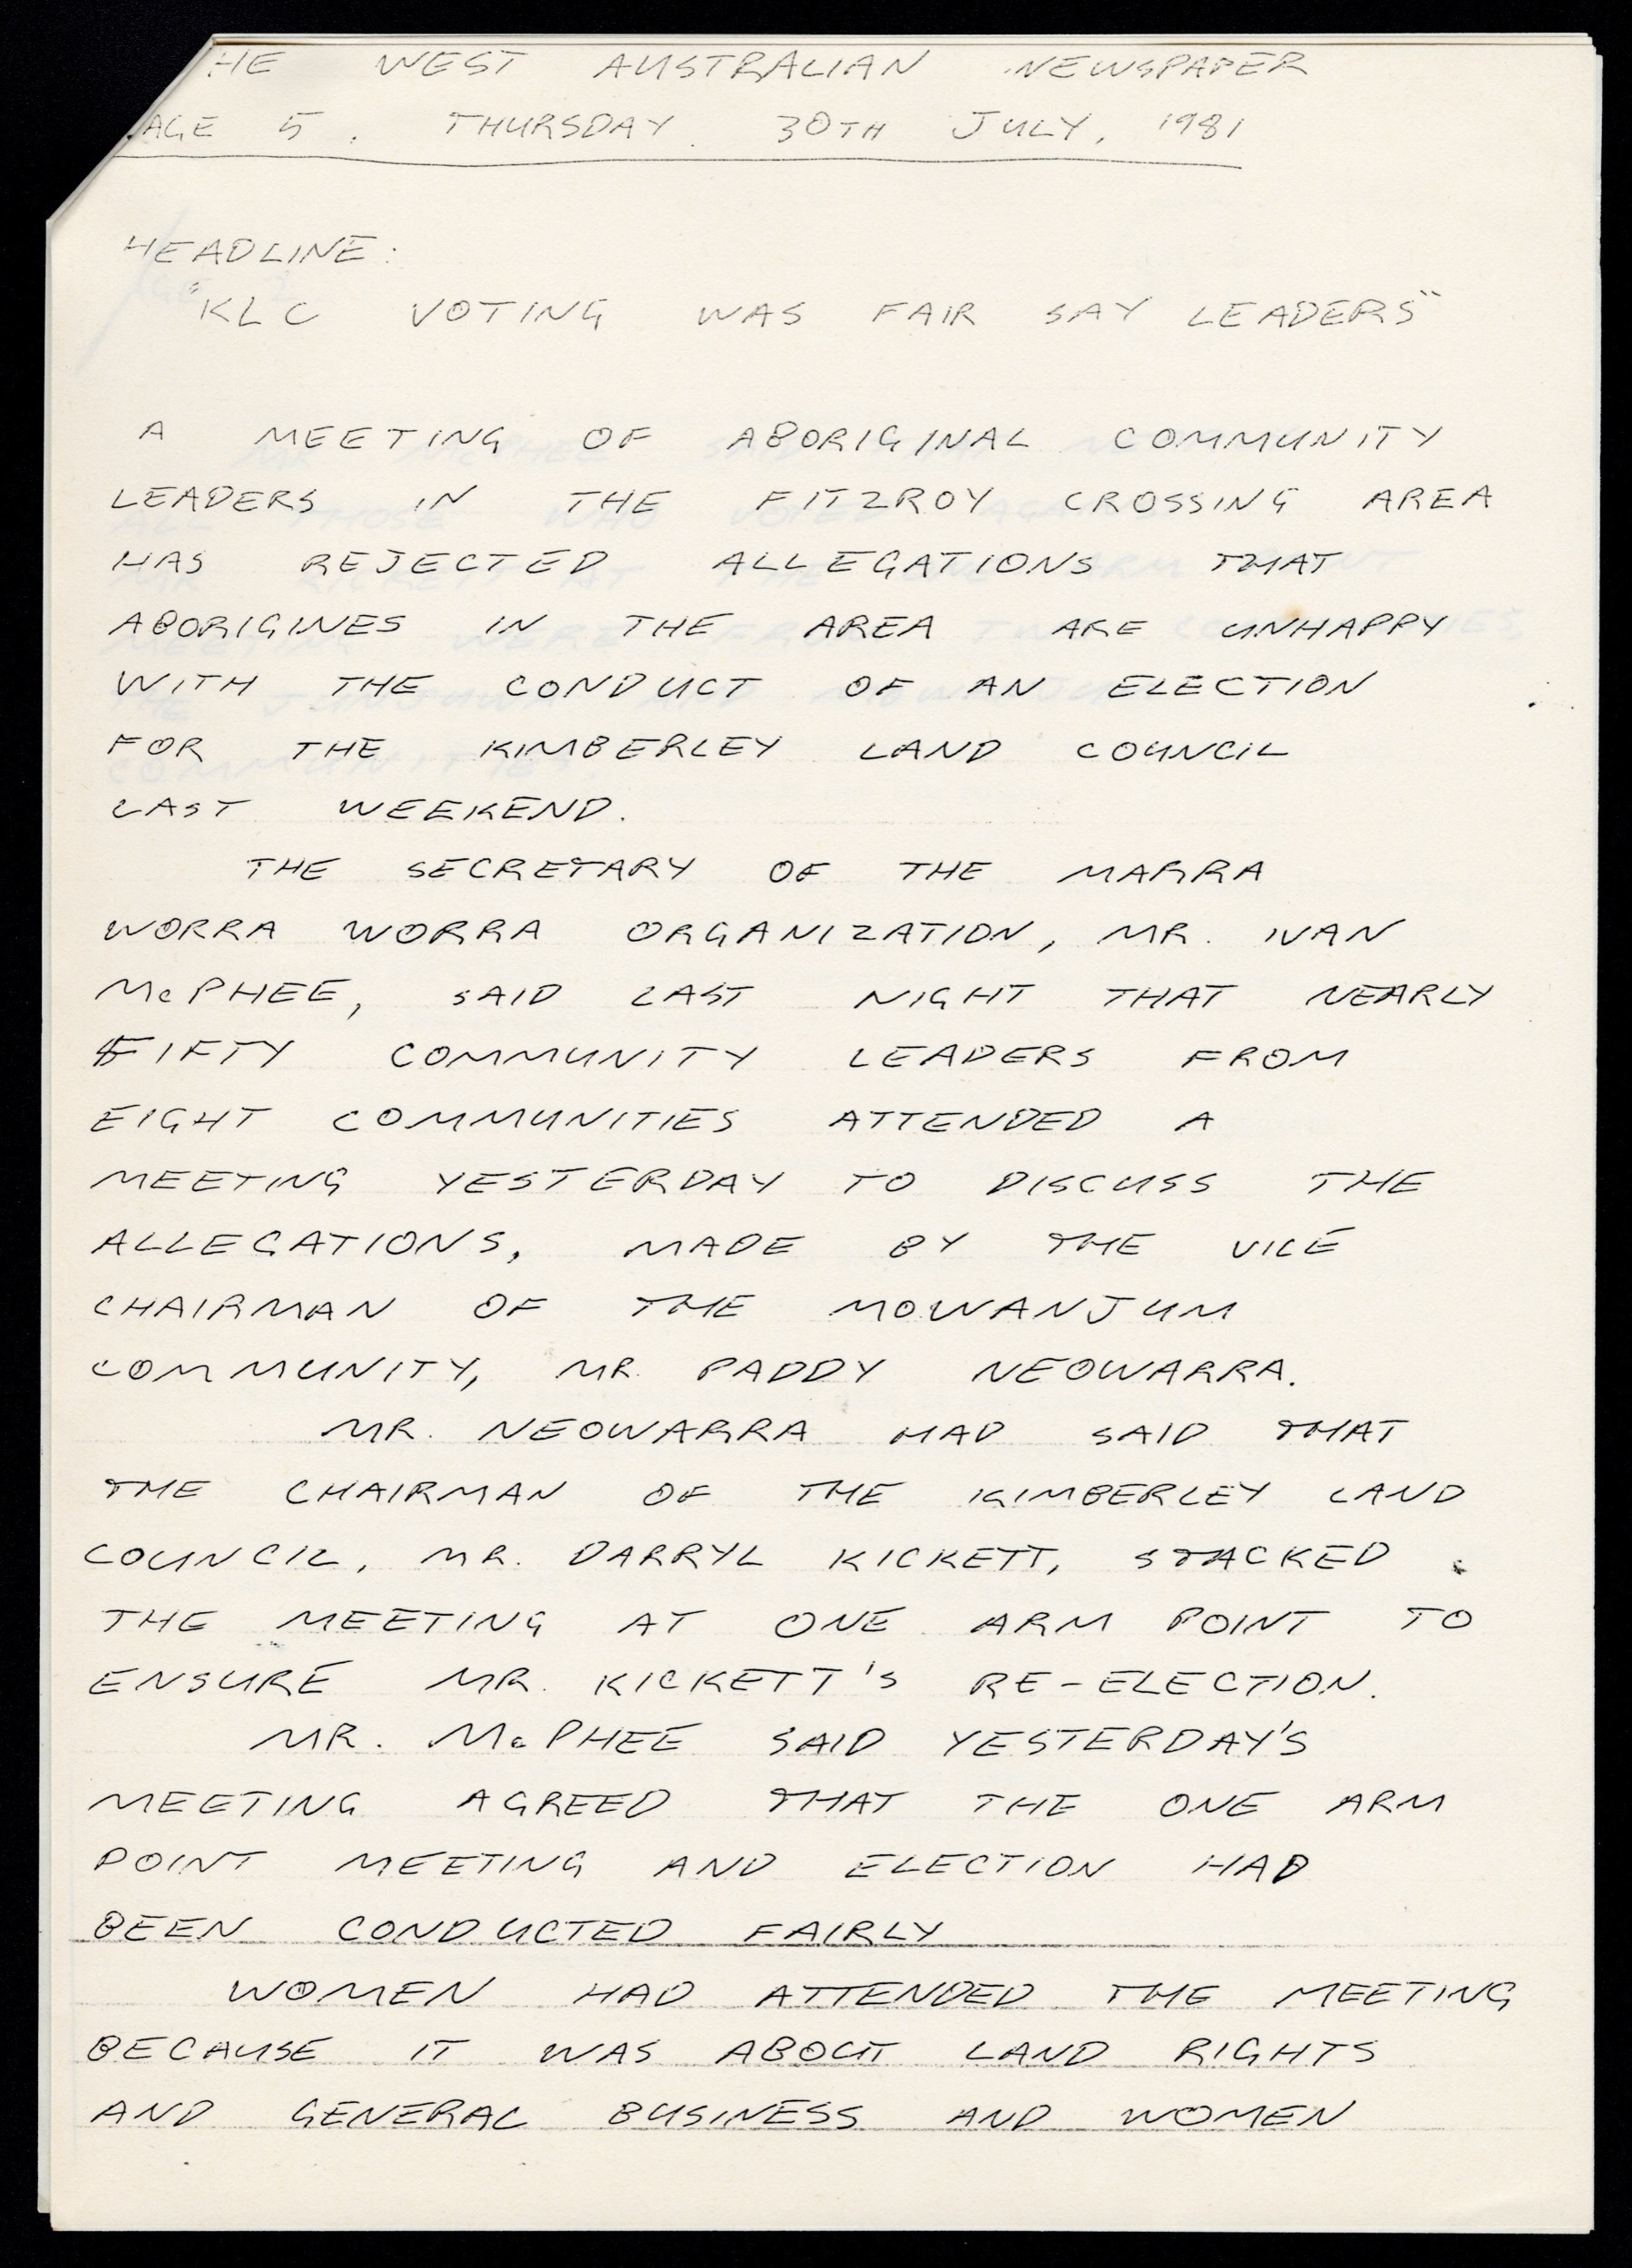 HE WEST AUSTRALIAN NEWSPAPER
AGE 5. THURSDAY. 30TH JULY, 1981
HEADLINE:
"KLC VOTING WAS FAIR SAY LEADERS"
A MEETING OF ABORIGINAL COMMUNITY
LEADERS IN THE FITZROY CROSSING AREA
HAS REJECTED ALLEGATIONS THAT
ABORIGINES IN THE AREA ARE UNHAPPY
WITH THE CONDUCT OF AN ELECTION
FOR THE KIMBERLEY LAND COUNCIL
LAST WEEKEND.
THE SECRETARY OF THE MARRA
WORRA WORRA ORGANIZATION, MR. IVAN
McPHEE, SAID LAST NIGHT THAT NEARLY
FIFTY COMMUNITY LEADERS FROM
EIGHT COMMUNITIES ATTENDED A
MEETING YESTERDAY TO DISCUSS THE
ALLEGATIONS, MADE BY THE VICE
CHAIRMAN OF THE MOWANJUM
COMMUNITY, MR. PADDY NEOWARRA.
MR. NEOWARRA HAD SAID THAT
THE CHAIRMAN OF THE KIMBERLEY LAND
COUNCIL, MR. DARRYL KICKETT, STACKED
THE MEETING AT ONE ARM POINT TO
ENSURE MR. KICKETT'S RE-ELECTION.
MR. McPHEE SAID YESTERDAY'S
MEETING AGREED THAT THE ONE ARM
POINT MEETING AND ELECTION HAD
BEEN CONDUCTED FAIRLY
WOMEN HAD ATTENDED THE MEETING
BECAUSE IT WAS ABOUT LAND RIGHTS
AND GENERAL BUSINESS AND WOMEN